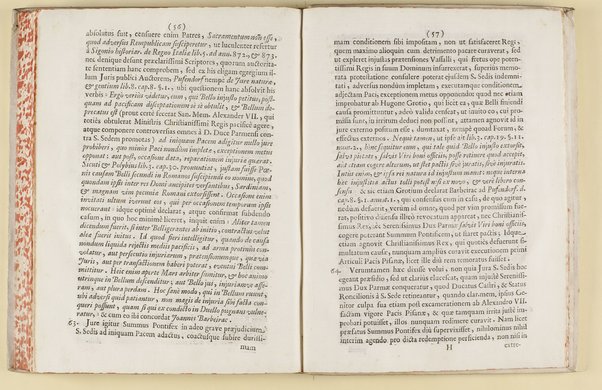 (56)
absolutus sunt, censuere enim Patres, Sacramentum nostrum esse,
quod adversùs Rempublicam susciperetur, ut luculenter refertur
à Sigonio historiar. de Regno Italiæ lib. 5. ad ann. 872., & 873.
nec denique desunt præclarissimi Scriptores, quorum auctorita-
te sententiam hanc comprobem, sed ex his eligam egregium il-
lum Juris publici Auctorem, Pufendorf nempè de Jure naturæ,
& gentium lib. 8. cap. 8. §. 1., ubi quæstionem hanc absolvit his
verbis: Ergò verius videtur, eum, qui Bello injusto petitus, post-
quam ad pacificam disceptationem is se obtulit, & Bellum de-
precatus est (prout certè fecerat San. Mem. Alexander VII., qui
toties obtulerat Ministris Christianissimi Regis pacificè agere,
atque componere controversias omnes à D. Duce Parmensi con-
tra S. Sedem promotas) ad iniquam Pacem adigitur nullo jure
prohiberi, quo minùs Paci mendosè implete, exceptionem metus
opponat: aut post, occasione data, reparationem injuriæ quærat.
Sicuti & Polybius lib. 3. cap. 30. pronuntiat, justam fuisse Pœ-
nis causam Belli secundi in Romanos suscipiendi eo nomine, quod
quondam ipsis inter rei Domi ancipites versantibus, Sardiniam,
& magnam vim pecuniæ Romani extorsissent. Occasione enim
invitati ultum iverunt eos, qui per occasionem tempora ipsis
nocuerant: idque optimè declarat, atque confirmat subdendo
casum, in quo hoc minimè liceret, inquit enim: Aliud tamen
dicendum fuerit, si inter Belligerantes ab initio, contractus velut
aleæ fuerit initus. Id quod fieri intelligitur, quando de causa
nondum liquida rejectis mediis pacificis, ad arma protinùs con-
volatur, aut persecutio injuriarum, prætensionumque, quæ via
Juris, aut per transactionem haberi poterat, eventui Belli com-
mittitur. Heic enim aperte Mars arbiter sumitur, & hoc animo
utrinque in Bellum descenditur, aut Bello jus, injuriamve asse-
ram, aut plura perdam. Hoc sanè modo, qui in Bellum ruunt,
ubi adversi quid patiuntur, non magis de injuria sibi facta con-
queri possunt, quam si qui ex condicto in Duello pugnans vulne-
ratur; & cum eo iti concordat Joannes Barbeirac.
63. Jure igitur Summus Pontifex in adeo grave præjudicium
S. Sedis ad iniquam Pacem adactus, coactusque subire durissi-
mam
(57)
mam conditionem sibi impositam, non ut satisfaceret Regi,
quem maximo alioquin cum detrimento pacare curaverat, sed
ut expleret injustas prætensiones Vassalli, qui fretus ope poten-
tissimi Regis in suum Dominum insurrexerat, superiùs memo-
rata protestatione consulere poterat ejusdem S. Sedis indemni-
tati, adversùs nondum impletam, exeuntamque conditionem
adjectam Paci, exceptionem metus opponendo: quod nec etiam
improbatur ab Hugone Grotio, qui licèt ea, quæ Belli finiendi
causa promittuntur, adeò valida censeat, ut invito eo, cui pro-
missa sunt, in irritum deduci non possint, attamen agnovit id in
jure externo positum esse, duntaxat, nempè quoad Forum, &
effectus externos. Neque tamen, ut ipse ait lib. 3. cap. 19. §. 11.
num. 2., hinc sequitur eum, qui tale quid Bello injusto extorsit,
salvâ pietate, salvis Viri boni officiis, posse retinere quod accepit,
aut etiam cogere alterum, ut stet pactis sive juratis, sive injuratis.
Intùs enim, & ipsâ rei naturâ id injustum manet: neque interna
hæc injustitia actus tolli potest nisi ex novo, & verè libero con-
sensu. & ita etiam Grotium declarat Barbeirac ad Pufendorf. d.
cap. 8. §. 1. annot. 1., qui consensus cum in casu, de quo agitur,
nedum defuerit, verùm ad omne, quod per vim promissum fue-
rat, positivo dissensu illicò revocatum appareat, nec Christianis-
simus Rex, nec Serenissimus Dux Parmæ salvis Viri boni officiis,
cogere poterant Summum Pontificem, ut staret pacto. Idque
etiam agnovit Christianissimus Rex, qui quoties defuerit si-
multatum causæ, nunquam ampliùs curavit executionem primi
Articuli Pacis Pisanæ, licèt ille diù rem remoratus fuisset.
64. Verùmtamen hæc dixisse volui, non quia Jura S. Sedis hoc
egeant præsidio, sed ut clarius eluceat, quam injustè Serenissi-
mus Dux Parmæ conqueratur, quod Ducatus Castri, & Status
Roncilionis à S. Sede retineantur, quandò clar. mem. ipsius Ge-
nitor culpa sua etiam post excamerationem ab Alexandro VII.
factam vigore Pacis Pisanæ, & quæ tamquam irrita justè im-
probari potuisset, illos nunquam redimere curavit. Nam licèt
præfatus Summus Pontifex diù supervixisset, nihilominùs nihil
interim agendo pro dicta redemptione perficienda, non nisi in
H
extre-